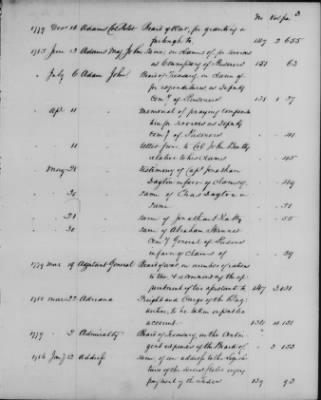 No Vol pa 3
1779 Novr 16 Adams Col Peter Board of War, for granting a
furlough to 147 2 655
1785 June 13 Adams Maj John Same, on claims of, for services
as Commissary of Prisoners 151 63
" July 6 Adam John Board of Treasury, on claim of
for expenditures as Deputy
Comy of Prisoners 138 1 37
" Apr 11 Memorial of praying compensa
tion for services as Deputy
Comy of Prisoners 41
" " 11 letter from to Col John Beatty
relative to his claims 45
" May 28 Testimony of Capt Jonathan
Dayton in favor of claims of 49
" " 30 Same of Elias Dayton "
Same 51
" " 21 same of Jonathan 55
" " 30 same of Abraham Skinner
Comy General of Prisoners
in favor of claims of 59
1779 mar 19 Adjutant General Board of war, on number of rations
to the, & concerning the ap-
pointment of two assistants to 147 3 131
1780 mar 22 Adriana Freight and Cargo of the Brig
antine, to be taken in public
account 136 4 151
1779 " 3 Admiralty Board of Treasury, on the Contin
gent expenses of the Board of 3 133
1786 Jany 13 Address same, of an address to the Legisla
tures of the several States urging
payment of the under 139 93